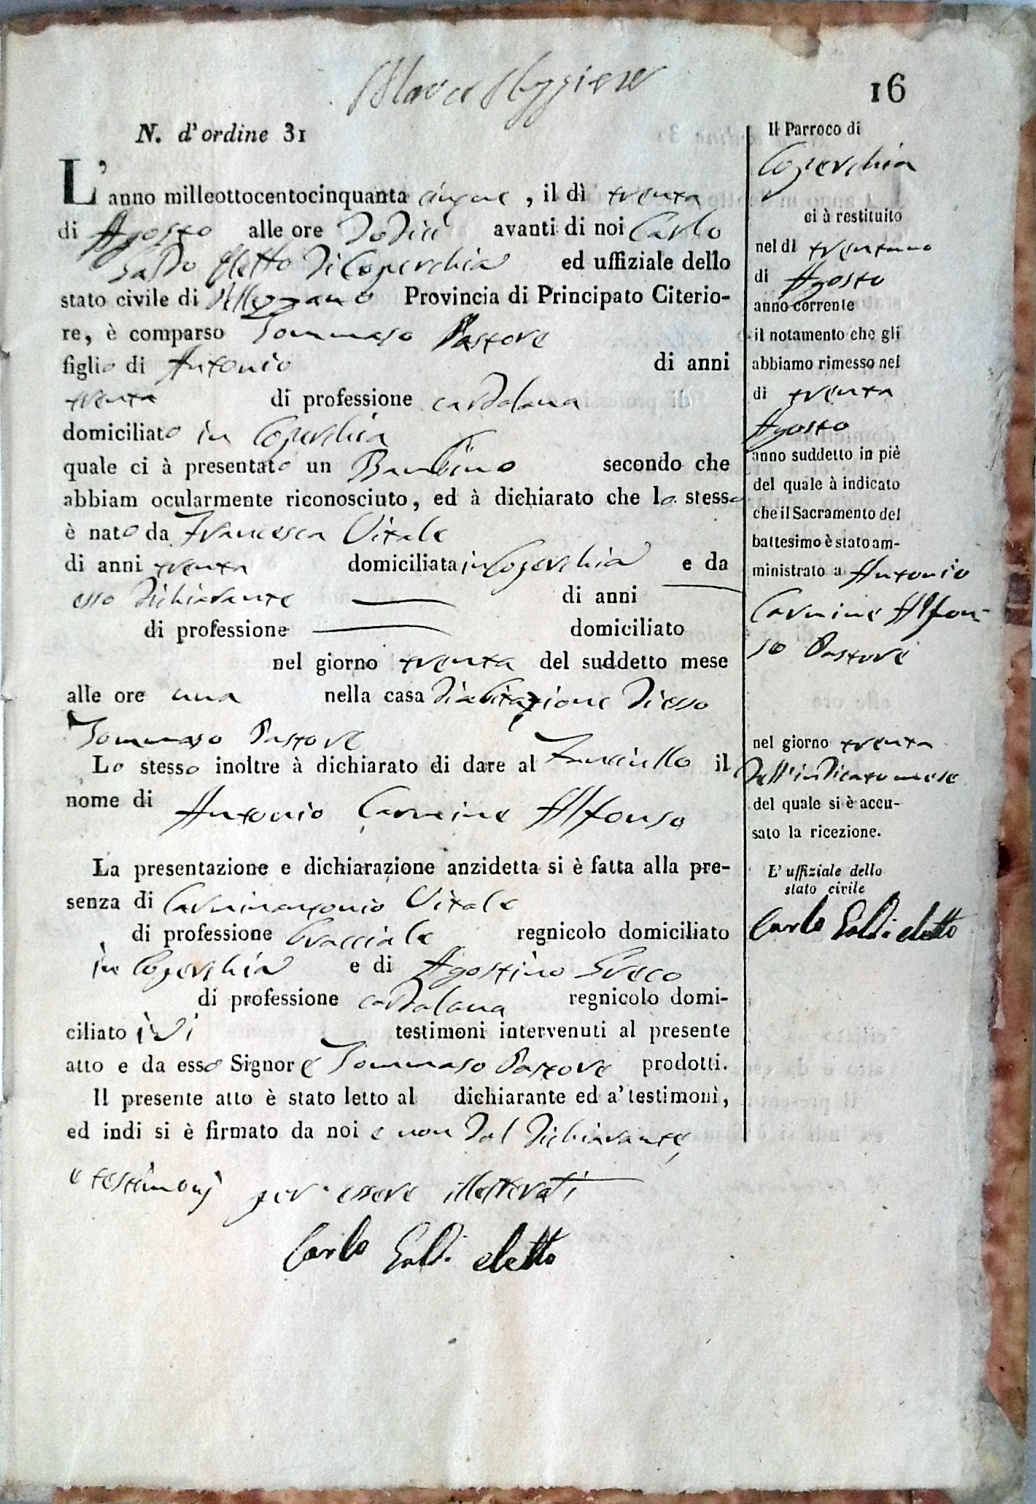 16
N. d'ordine 31
L'anno milleottocentocinquanta cinque, il dì trenta
di Agosto alle ore Dodici avanti di noi Carlo
Galdo Eletto Di Coperchia ed uffiziale dello
stato civile di Pellezzano Provincia di Principato Citerio-
re, è comparso Tommaso Pastore
figlio di Antonio di anni
trenta di professione cardalana
domiciliato in Coperchia
quale ci à presentato un Bambino secondo che
abbiam ocularmente riconosciuto, ed à dichiarato che lo stesso
è nato da Francesca Vitale
di anni trenta domiciliata in Coperchia e da
esso Dichiarante di anni
di professione domiciliato
nel giorno trenta del suddetto mese
alle ore una nella casa di abitazione Di esso
Tommaso Pastore
Lo stesso inoltre à dichiarato di dare al Fanciullo il
nome di Antonio Carmine Alfonso
La presentazione e dichiarazione anzidetta si è fatta alla pre-
senza di Carminantonio Vitale
di professione Bracciale regnicolo domiciliato
in Coperchia e di Agostino Greco
di professione cardalana regnicolo domi-
ciliato ivi testimoni intervenuti al presente
atto e da esso Signore Tommaso Pastore prodotti.
Il presente atto è stato letto al dichiarante ed a' testimoni,
ed indi si è firmato da noi e non Dal Dichiarante,
e testimonj per essere illetterati
Carlo Galdi eletto
Il Parroco di
Coperchia
ci à restituito
nel dì trentuno
di Agosto
anno corrente
il notamento che gli
abbiamo rimesso nel
dì trenta
Agosto
anno suddetto in piè
del quale à indicato
che il Sacramento del
battesimo è stato am-
ministrato a Antonio
Carmine Alfon-
so Pastore
nel giorno trenta
Dell'indicato mese
del quale si è accu-
sato la ricezione.
L'uffiziale dello
stato civile
Carlo Galdi eletto